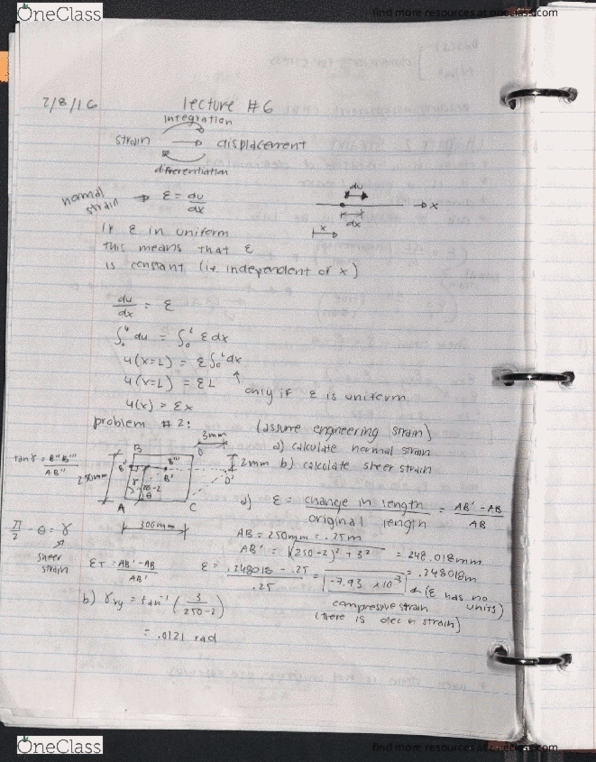 OneClass
find more resources at oneclass.com
2/8/16
lecture #6
integration
strain → displacement
differentiation
normal strain → ε = du/dx
du
→ x
x
dx
If ε in uniform
this means that ε
is constant (i.e. independent of x)
du/dx = ε
∫₀ᵘ du = ∫₀ᴸ ε dx
u(x=L) = ε ∫₀ᴸ dx
u(x=L) = εL
only if ε is uniform
u(x) = εx
problem #2:
(assume engineering strain)
a) calculate normal strain
b) calculate sheer strain
3mm
D
B
2mm
D'
B'
B''
B'''
tan γ = B''B'''/AB''
250mm
250-2
γ
θ
A
C
300mm
π/2 - θ = γ
sheer
strain
a) ε = change in length/original length = AB' - AB/AB
AB = 250mm = .25m
AB' = √(250-2)² + 3² = 248.018mm
= .248018m
ET = AB' - AB/AB'
ε = .248018 - .25/.25 = -7.93 x10⁻³ → (ε has no units)
compressive strain
(there is dec in strain)
b) γxy = tan⁻¹(3/250-2)
= .0121 rad
OneClass
find more resources at oneclass.com